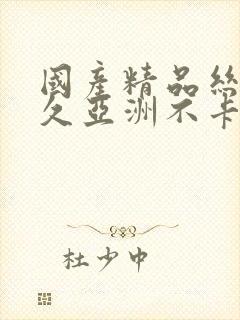 國產精品絲
久亞洲不卡
杜少中